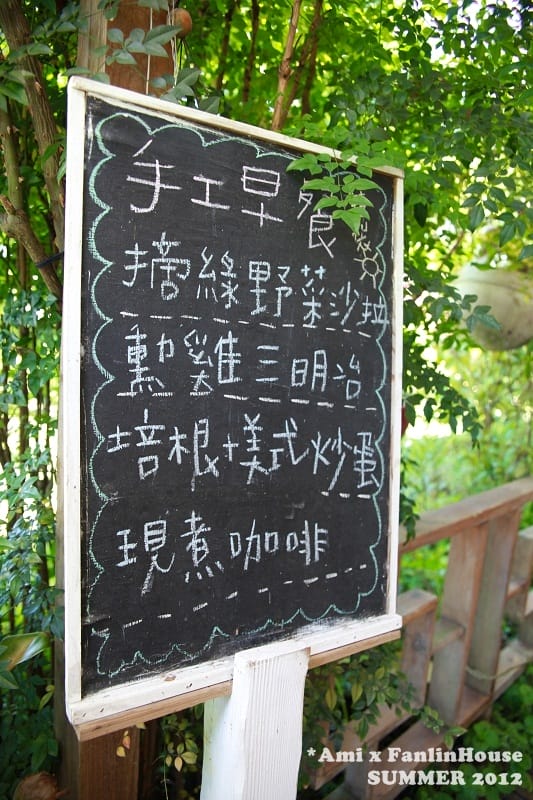 手工早餐
摘綠野菜沙拉
勳雞三明治
培根+美式炒蛋
現煮咖啡
*Ami x FanlinHouse
SUMMER 2012